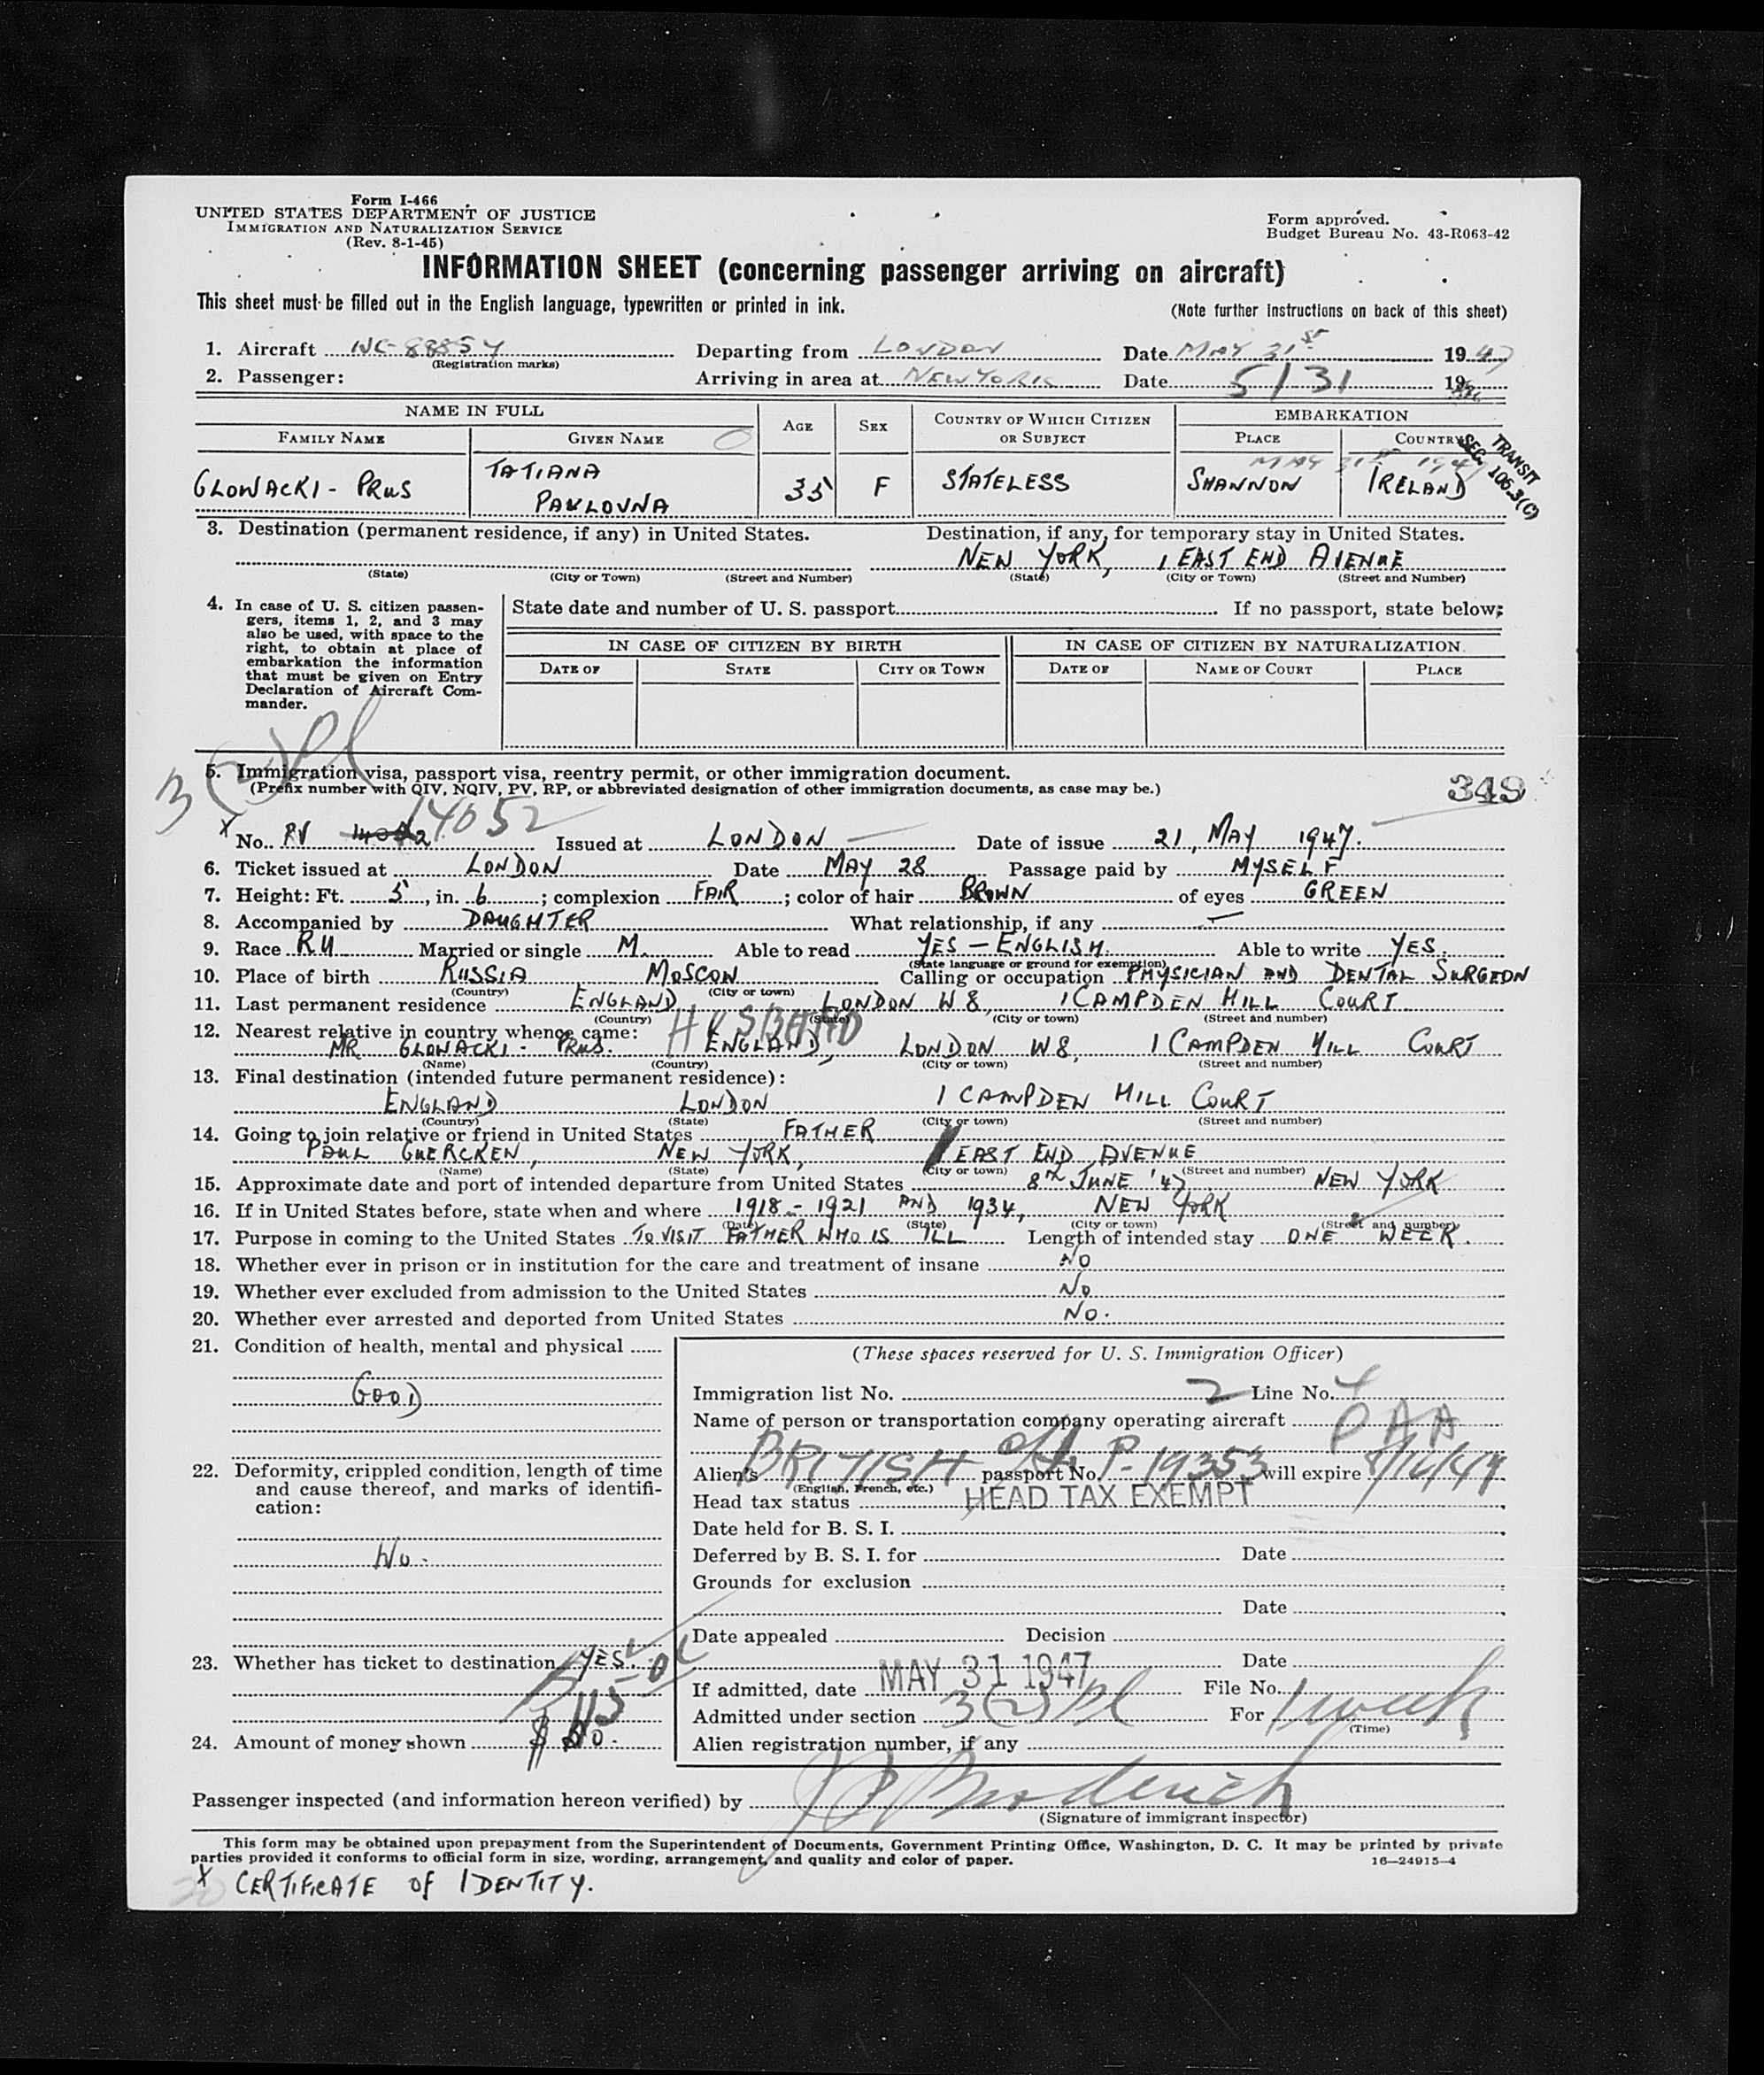 Form I-466
UNITED STATES DEPARTMENT OF JUSTICE
IMMIGRATION AND NATURALIZATION SERVICE
(Rev. 8-1-45)
Form approved.
Budget Bureau No. 43-R063-42
INFORMATION SHEET (concerning passenger arriving on aircraft)
This sheet must be filled out in the English language, typewritten or printed in ink.
(Note further instructions on back of this sheet)
1. Aircraft NC-88857 Departing from LONDON Date MAY 31st 1947
(Registration marks)
2. Passenger: Arriving in area at NEW YORK Date 5/31 19
NAME IN FULL AGE SEX COUNTRY OF WHICH CITIZEN OR SUBJECT EMBARKATION
FAMILY NAME GIVEN NAME PLACE COUNTRY
MAY 31st 1947
TRANSIT
SEC. 106.3(C)
GLOWACKI - PRUS TATIANA PAVLOVNA 35 F STATELESS SHANNON IRELAND
3. Destination (permanent residence, if any) in United States. Destination, if any, for temporary stay in United States.
NEW YORK, 1 EAST END AVENUE
(State) (City or Town) (Street and Number) (State) (City or Town) (Street and Number)
4. In case of U. S. citizen passen-
gers, items 1, 2, and 3 may
also be used, with space to the
right, to obtain at place of
embarkation the information
that must be given on Entry
Declaration of Aircraft Com-
mander.
State date and number of U. S. passport If no passport, state below:
IN CASE OF CITIZEN BY BIRTH IN CASE OF CITIZEN BY NATURALIZATION
DATE OF STATE CITY OR TOWN DATE OF NAME OF COURT PLACE
3(2)Pl
5. Immigration visa, passport visa, reentry permit, or other immigration document.
(Prefix number with QIV, NQIV, PV, RP, or abbreviated designation of other immigration documents, as case may be.)
349
14052
X No. PV Issued at LONDON Date of issue 21, MAY 1947.
6. Ticket issued at LONDON Date MAY 28 Passage paid by MYSELF
7. Height: Ft. 5, in. 6; complexion FAIR; color of hair BROWN of eyes GREEN
8. Accompanied by DAUGHTER What relationship, if any —
9. Race RU Married or single M. Able to read YES - ENGLISH. Able to write YES.
(State language or ground for exemption)
10. Place of birth RUSSIA MOSCOW Calling or occupation PHYSICIAN AND DENTAL SURGEON
(Country) (City or town)
11. Last permanent residence ENGLAND LONDON W8, 1 CAMPDEN HILL COURT
(Country) (State) (City or town) (Street and number)
12. Nearest relative in country whence came: HUSBAND
MR GLOWACKI - PRUS. ENGLAND, LONDON W8, 1 CAMPDEN HILL COURT
(Name) (Country) (City or town) (Street and number)
13. Final destination (intended future permanent residence):
ENGLAND LONDON 1 CAMPDEN HILL COURT
(Country) (State) (City or town) (Street and number)
14. Going to join relative or friend in United States FATHER
PAUL GUERCKEN, NEW YORK, 1 EAST END AVENUE
(Name) (State) (City or town) (Street and number)
15. Approximate date and port of intended departure from United States 8th JUNE '47 NEW YORK
16. If in United States before, state when and where 1918 - 1921 AND 1934, NEW YORK
(Date) (State) (City or town) (Street and number)
17. Purpose in coming to the United States TO VISIT FATHER WHO IS ILL Length of intended stay ONE WEEK.
18. Whether ever in prison or in institution for the care and treatment of insane NO
19. Whether ever excluded from admission to the United States NO
20. Whether ever arrested and deported from United States NO.
21. Condition of health, mental and physical
GOOD
22. Deformity, crippled condition, length of time
and cause thereof, and marks of identifi-
cation:
NO.
23. Whether has ticket to destination YES.
24. Amount of money shown $
(These spaces reserved for U. S. Immigration Officer)
Immigration list No. 2 Line No. 4
Name of person or transportation company operating aircraft PAA
Alien's BRITISH passport No. P-19353 will expire
(English, French, etc.)
Head tax status HEAD TAX EXEMPT
Date held for B. S. I.
Deferred by B. S. I. for Date
Grounds for exclusion
Date
Date appealed Decision
Date
If admitted, date MAY 31 1947 File No.
Admitted under section 3(2)Pl For 1 week
(Time)
Alien registration number, if any
Passenger inspected (and information hereon verified) by
(Signature of immigrant inspector)
This form may be obtained upon prepayment from the Superintendent of Documents, Government Printing Office, Washington, D. C. It may be printed by private
parties provided it conforms to official form in size, wording, arrangement, and quality and color of paper.
16—24915-4
X CERTIFICATE OF IDENTITY.